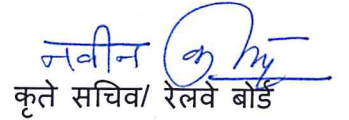 नवीन कु
कृते सचिव/ रेलवे बोर्ड